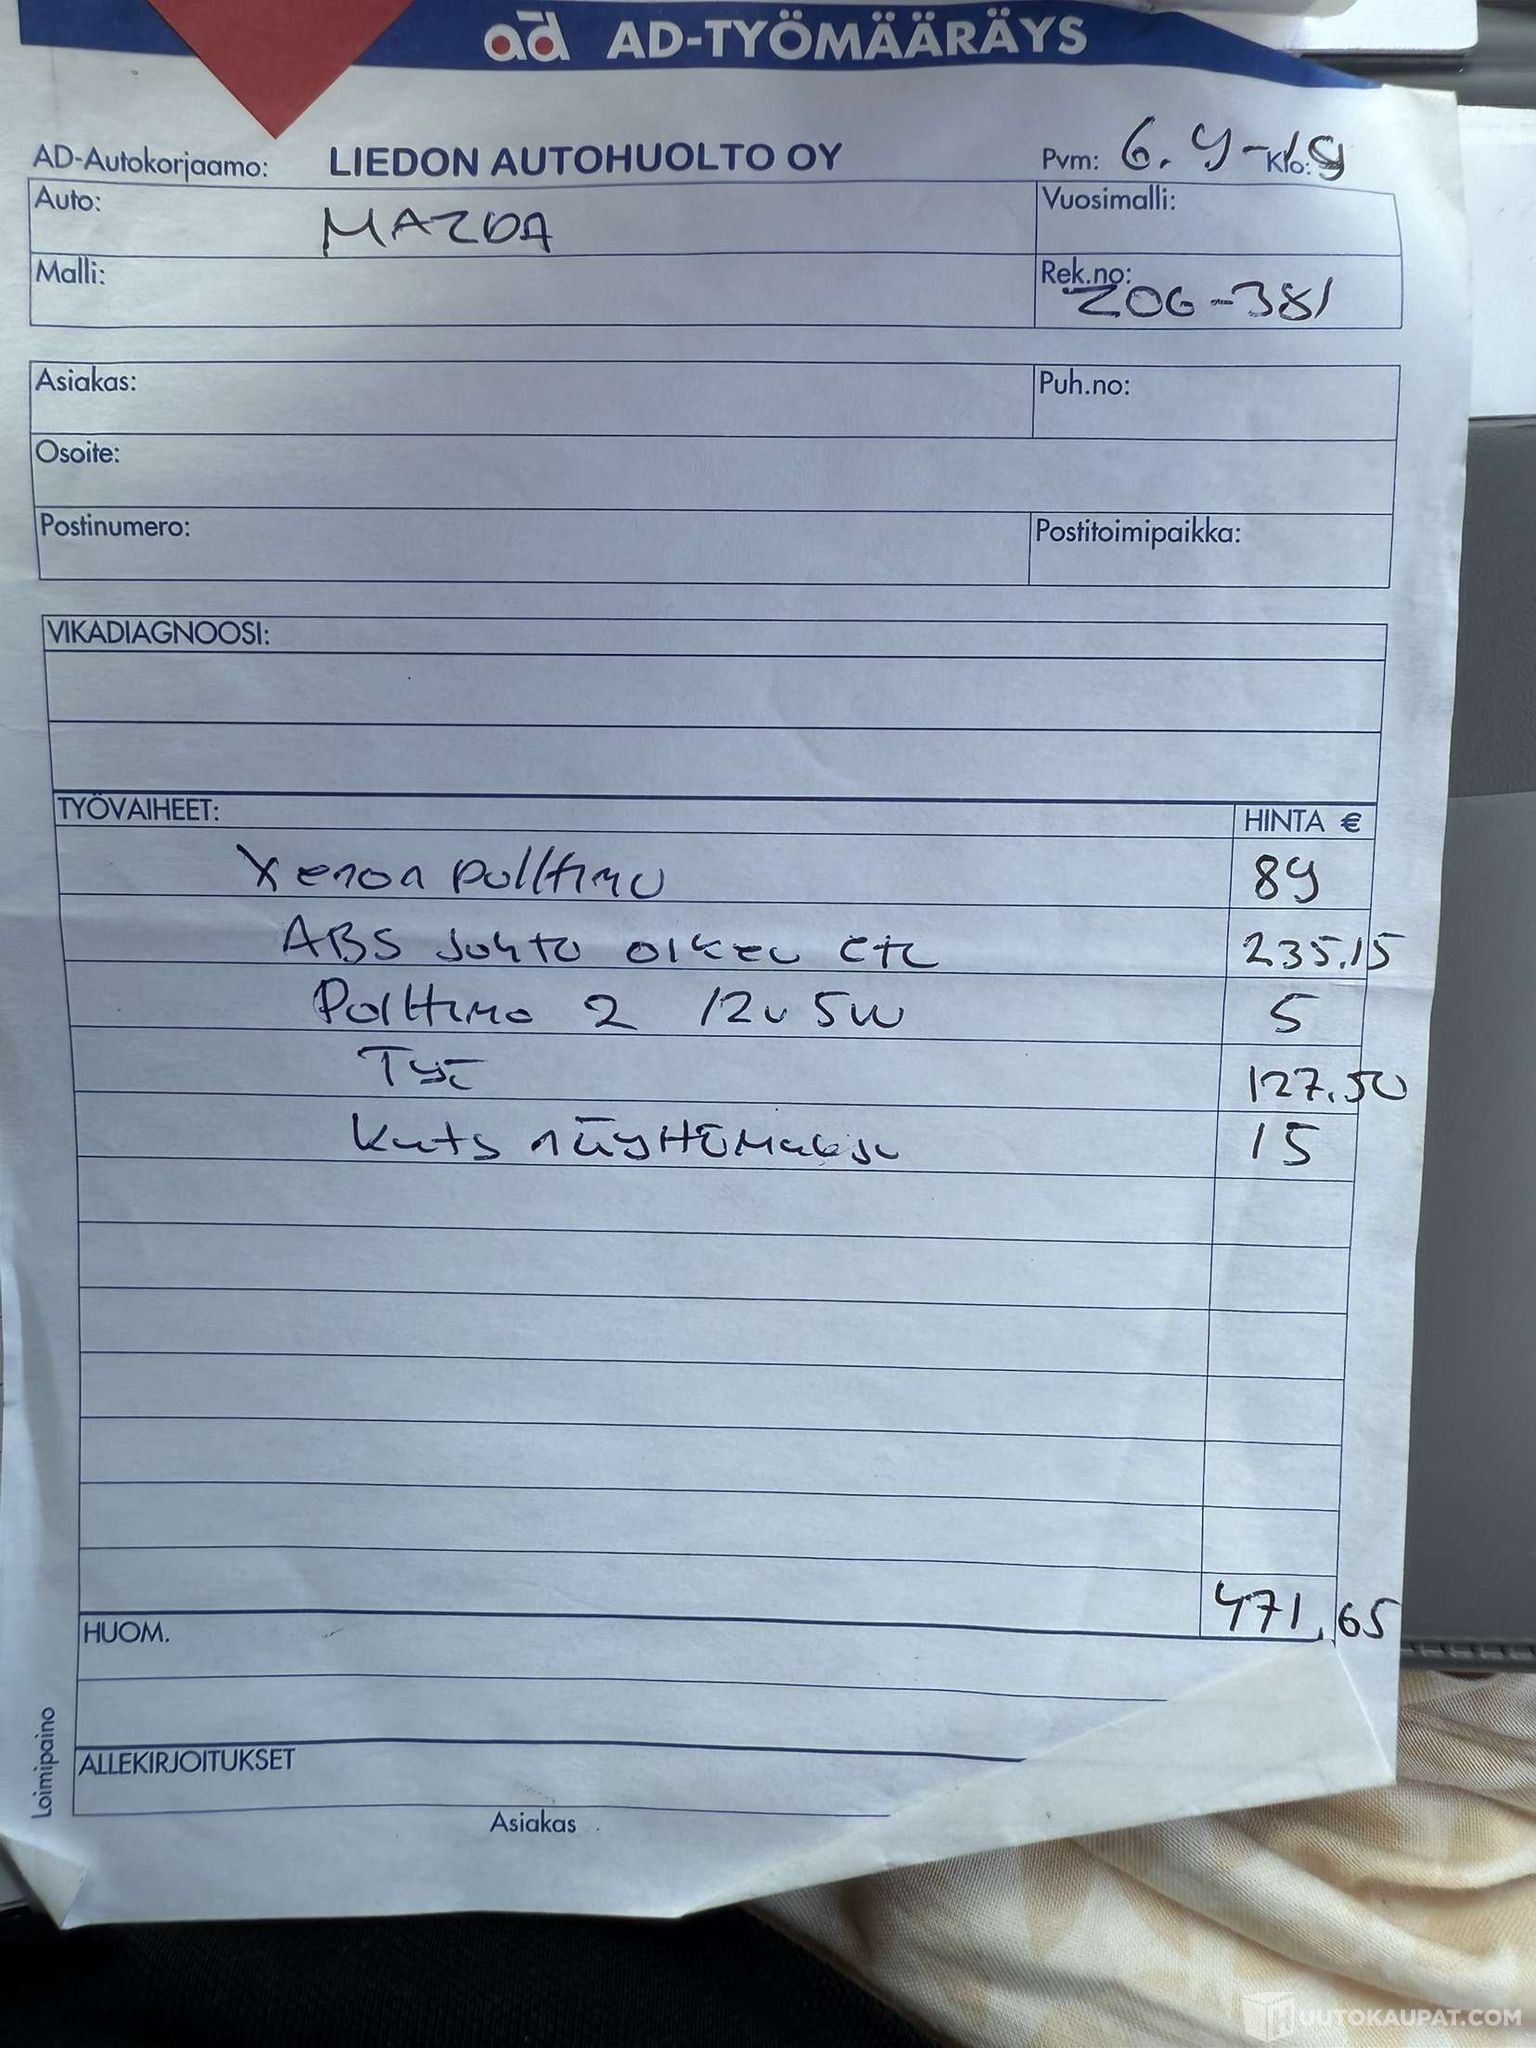 ad AD-TYÖMÄÄRÄYS
AD-Autokorjaamo: LIEDON AUTOHUOLTO OY Pvm: 6.9-19 Klo:
Auto: MAZDA Vuosimalli:
Malli: Rek.no: ZOG-381
Asiakas: Puh.no:
Osoite:
Postinumero: Postitoimipaikka:
VIKADIAGNOOSI:
TYÖVAIHEET: HINTA €
Xenon polttimo 89
ABS Johto oikea etu 235.15
Polttimo 2 12v 5w 5
Työ 127.50
Kats näyttömaksu 15
471,65
HUOM.
ALLEKIRJOITUKSET
Asiakas
Loimipaino
HUUTOKAUPAT.COM